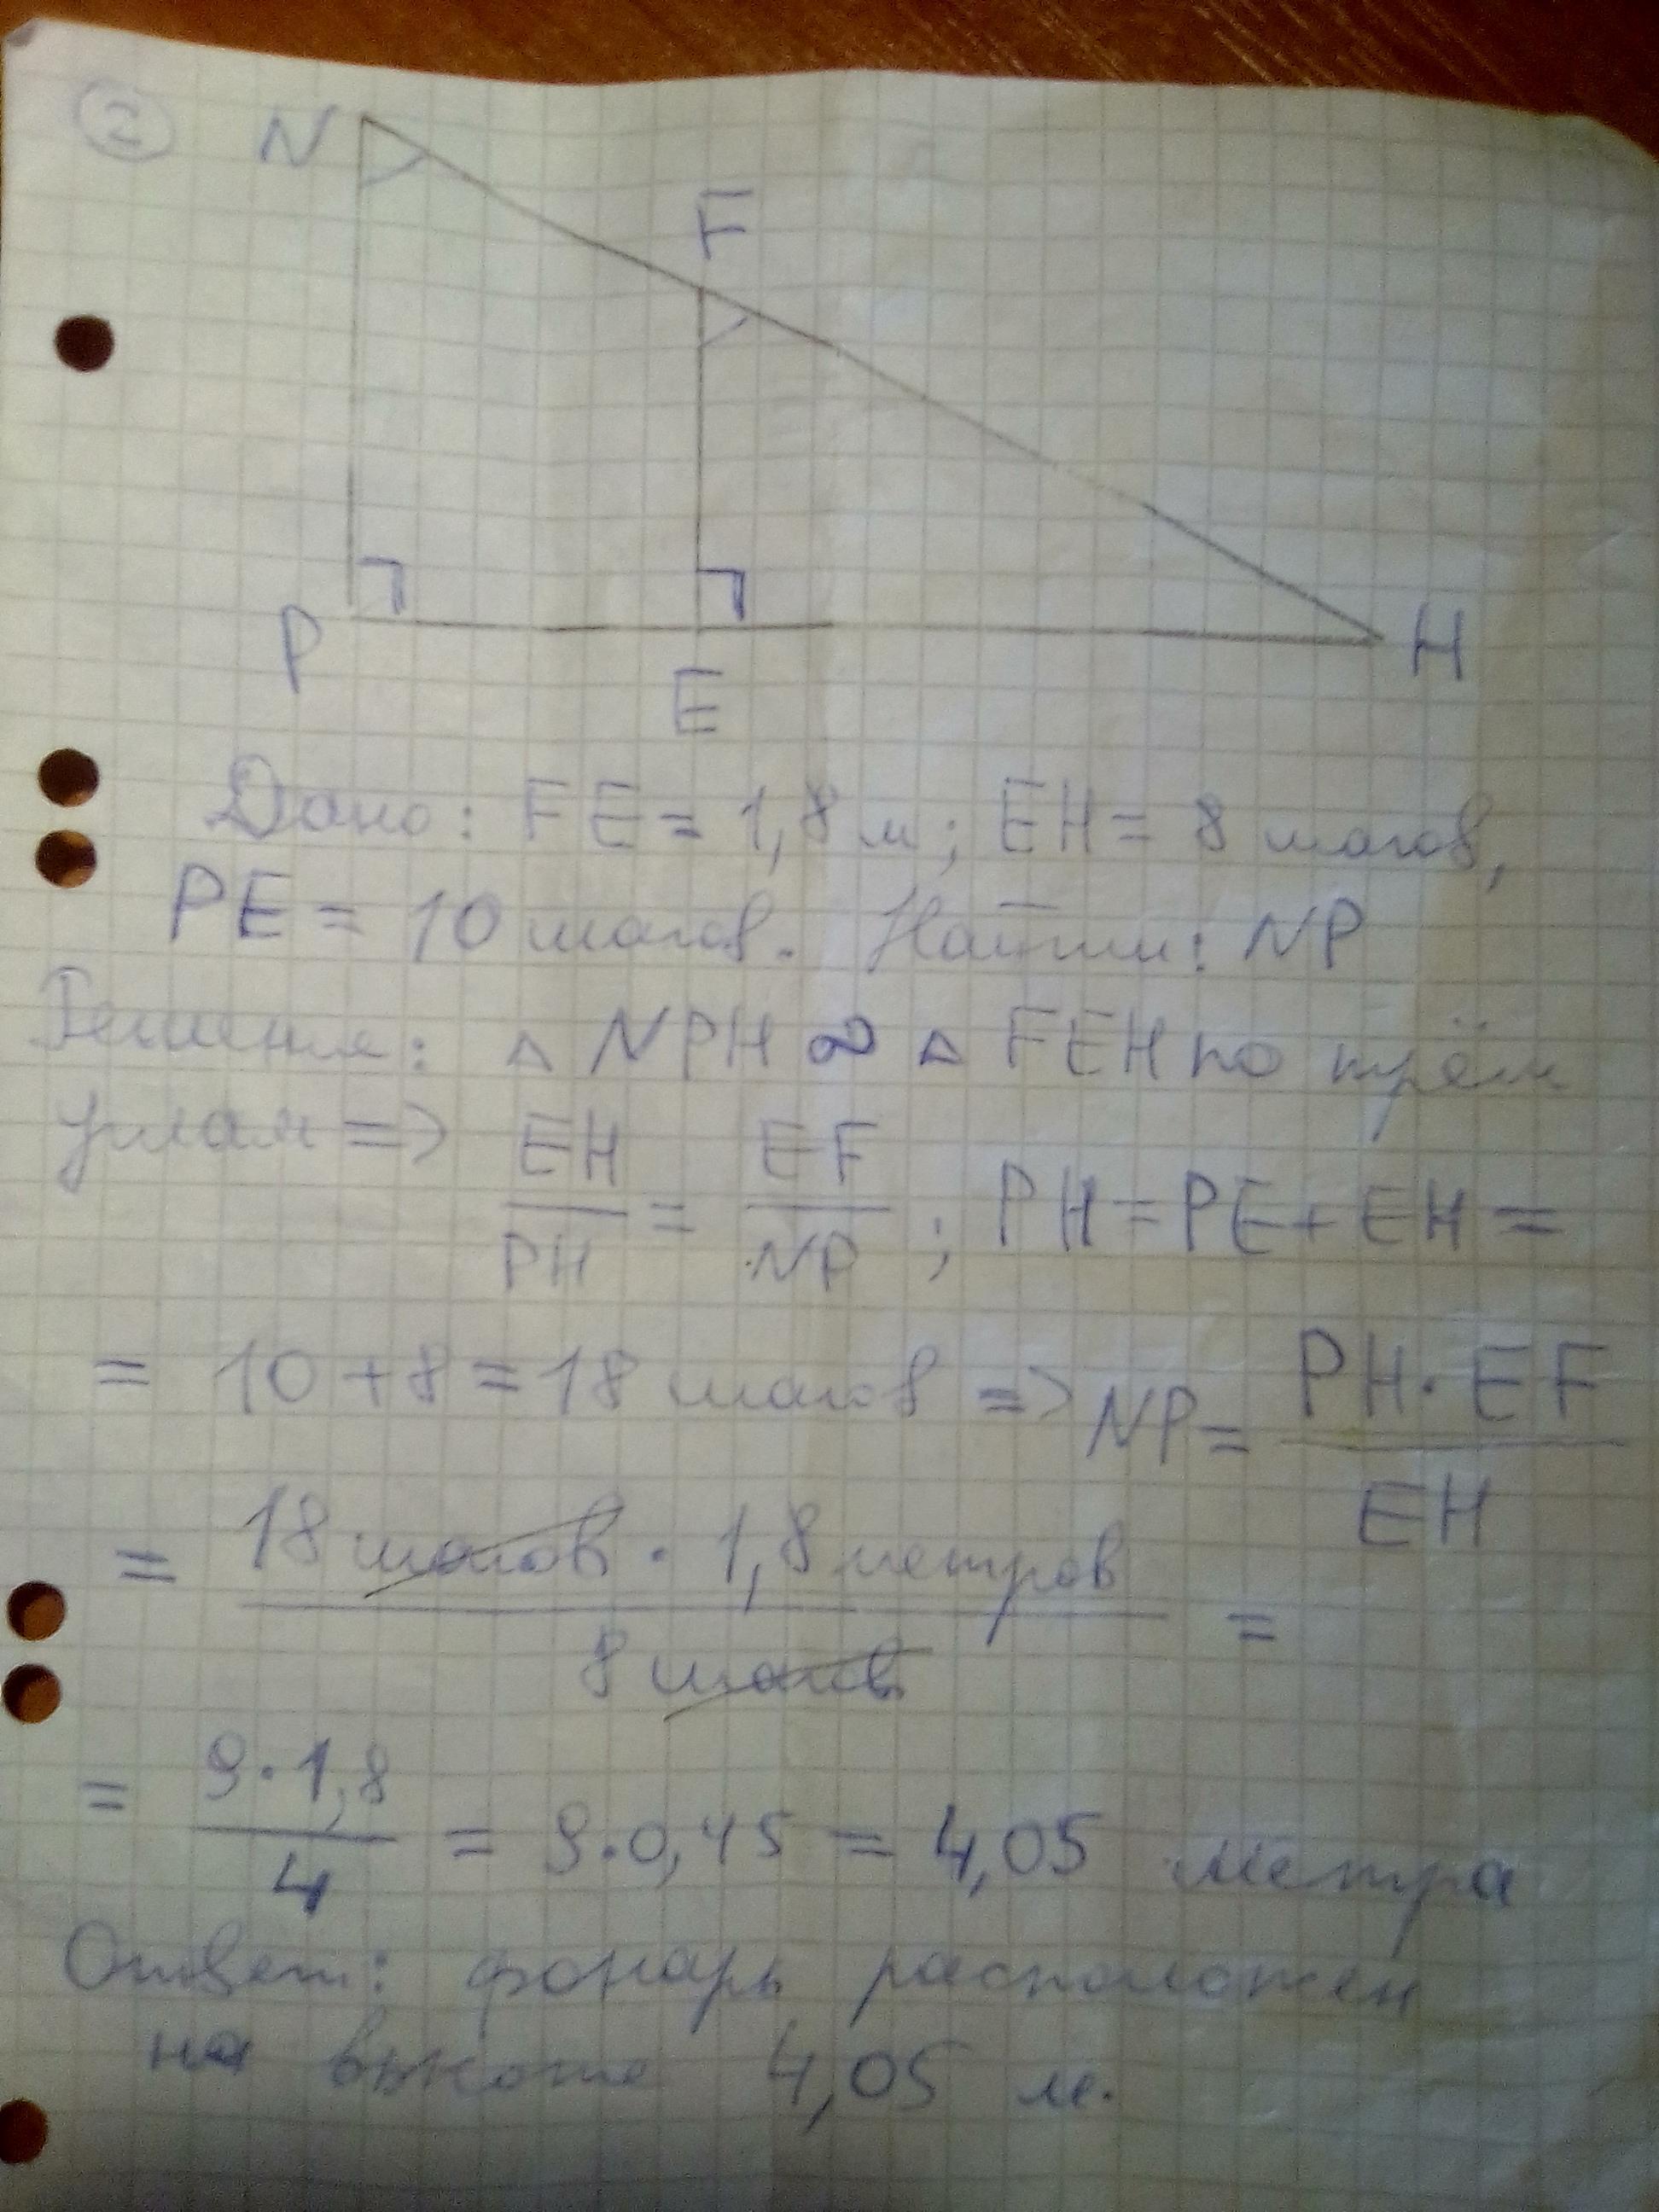 2
N
F
P
E
H
Дано: FE = 1,8 м; EH = 8 шагов,
PE = 10 шагов. Найти: NP
Решения: △ NPH ∞ △ FEH по трём
углам => EH/PH = EF/NP ; PH = PE + EH =
= 10 + 8 = 18 шагов => NP = PH · EF / EH
= 18 шагов · 1,8 метров / 8 шагов =
= 9 · 1,8 / 4 = 9 · 0,45 = 4,05 метра
Ответ: фонарь расположен
на высоте 4,05 м.